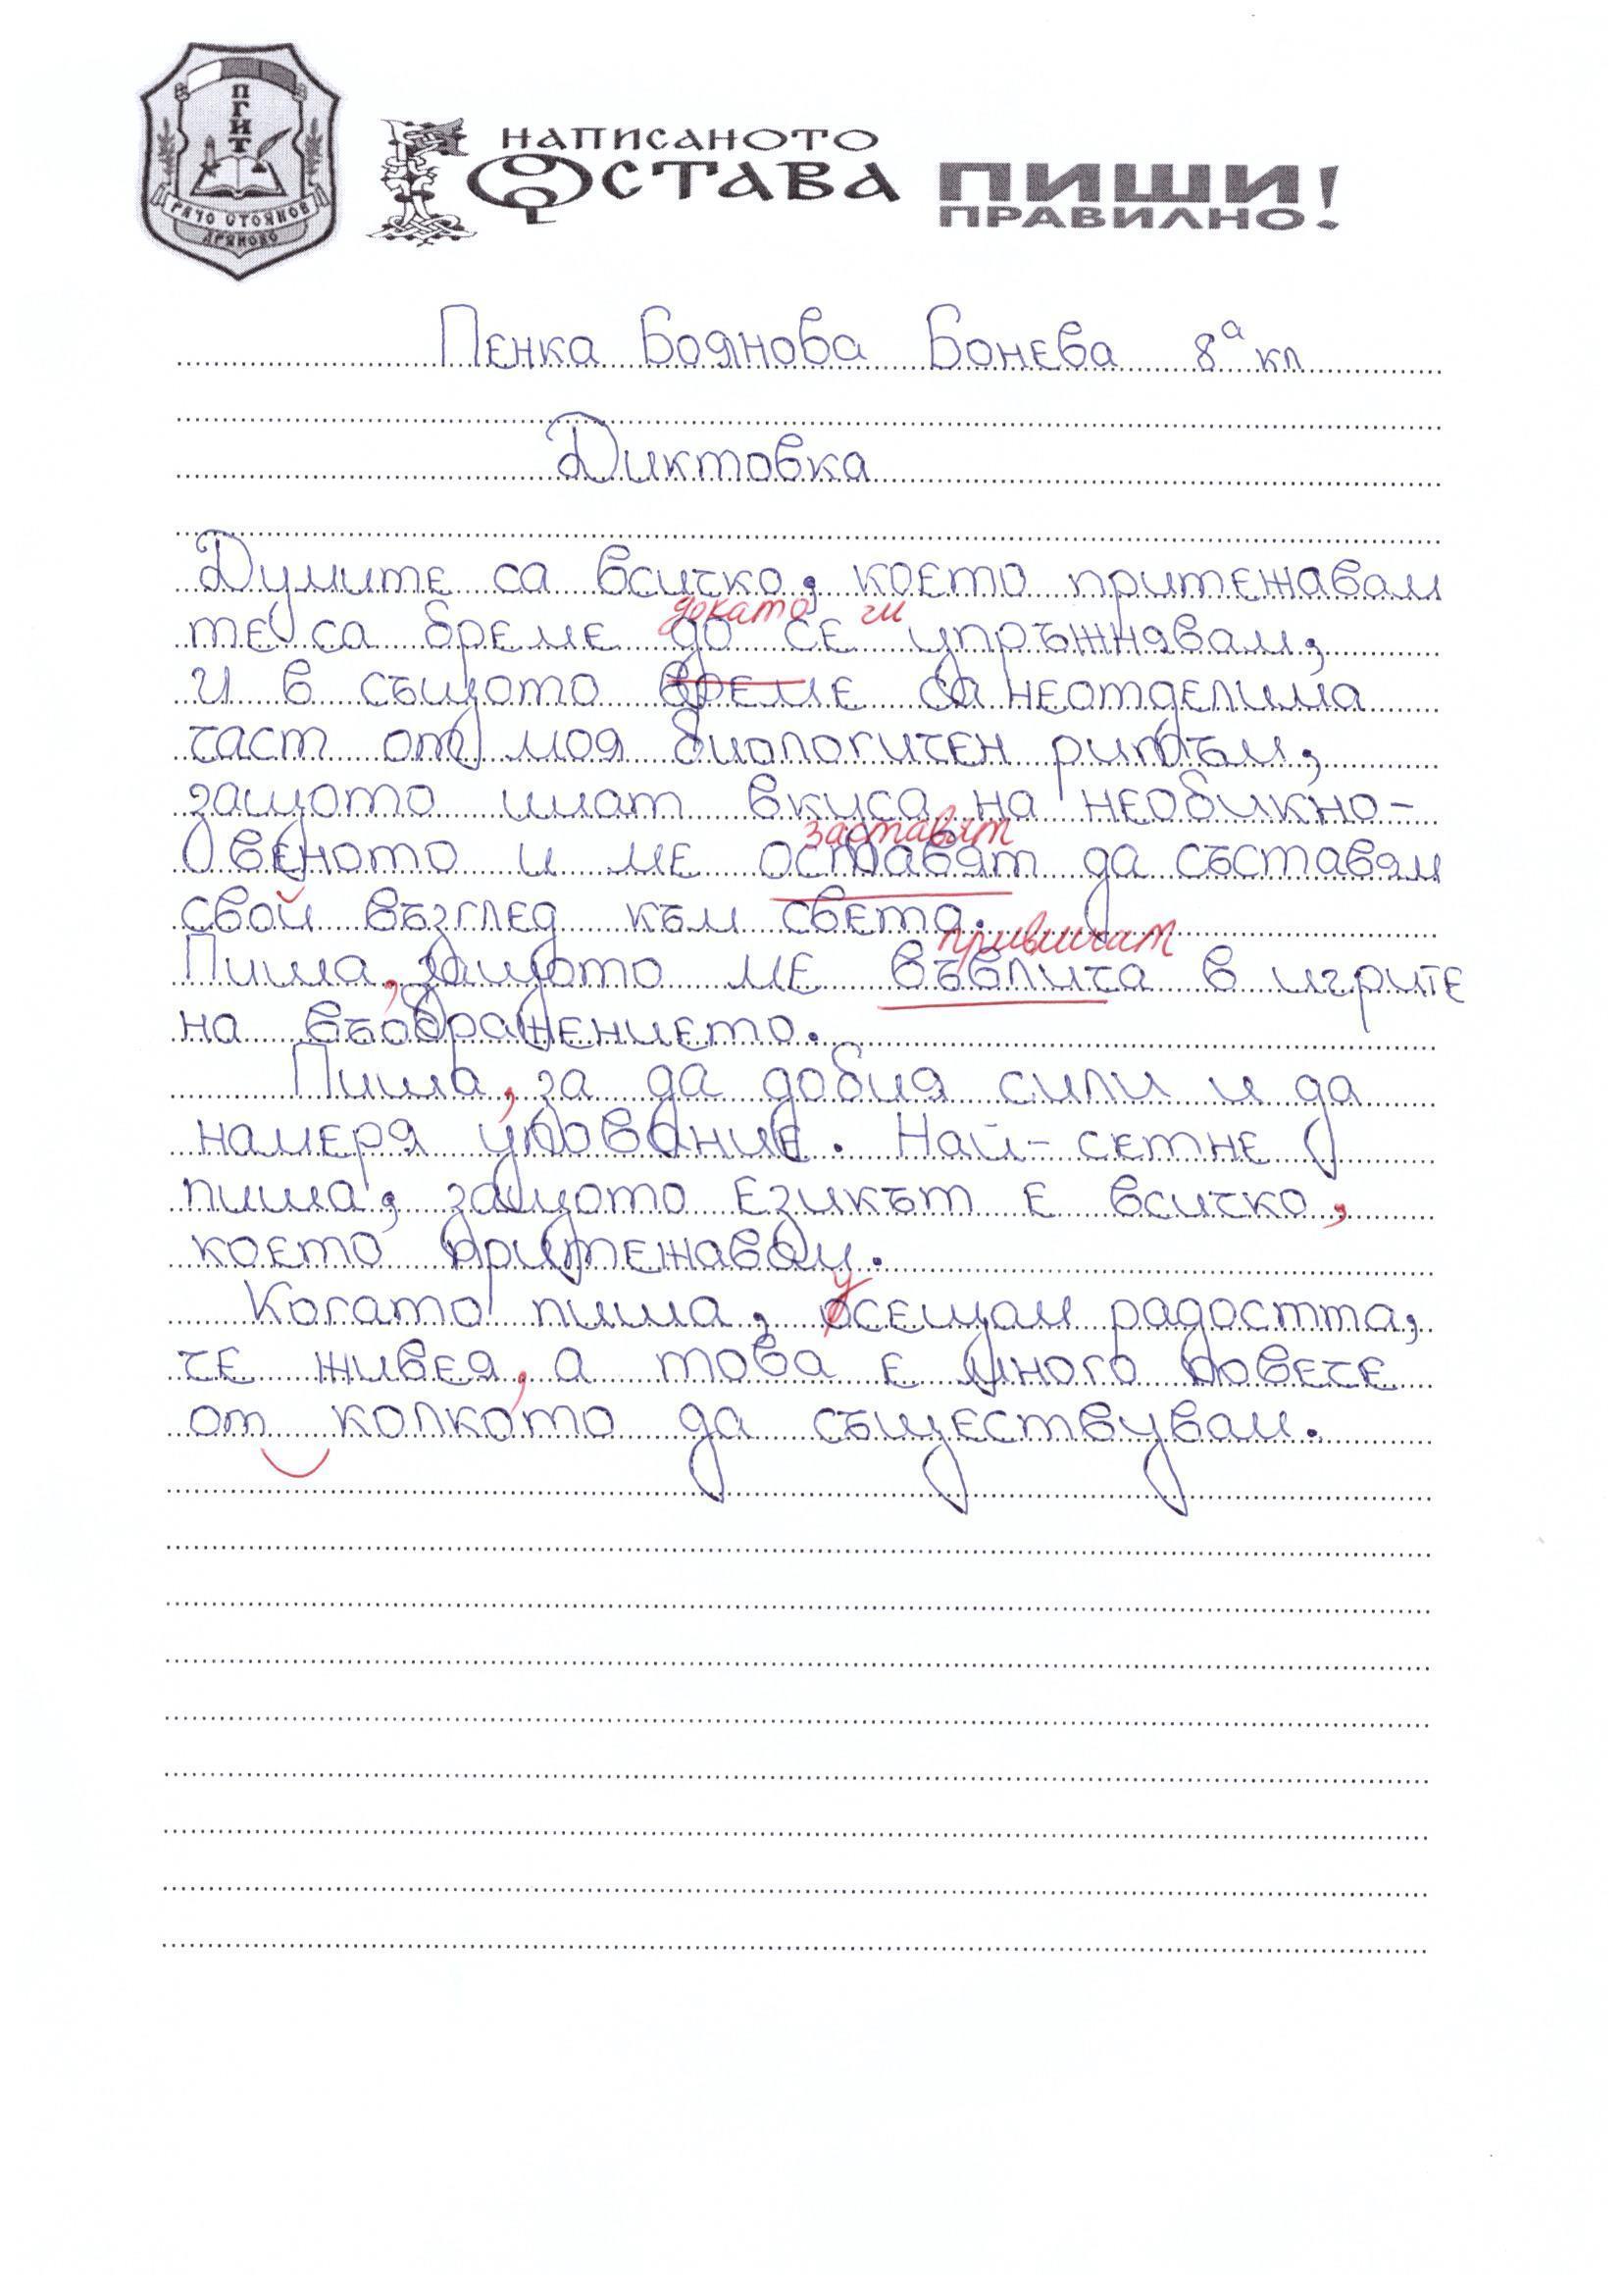 ПГИТ
РАЧО СТОЯНОВ
ДРЯНОВО
НАПИСАНОТО
ОСТАВА
ПИШИ
ПРАВИЛНО!
Пенка Боянова Бонева 8а кл
Диктовка
Думите са всичко, което притежавам
докато ги
те са бреме до се упръжнявам,
И в същото време са неотделима
част от моя биологичен ритъм,
защото имат вкуса на необикно-
заставят
веното и ме оставят да съставям
свой възглед към света.
привличат
Пиша, защото ме въвлича в игрите
на въображението.
Пиша, за да добия сили и да
намеря упование. Най-сетне
пиша, защото езикът е всичко,
което притежавам.
у
Когато пиша, осещам радостта,
че живея, а това е много повече
от колкото да съществувам.